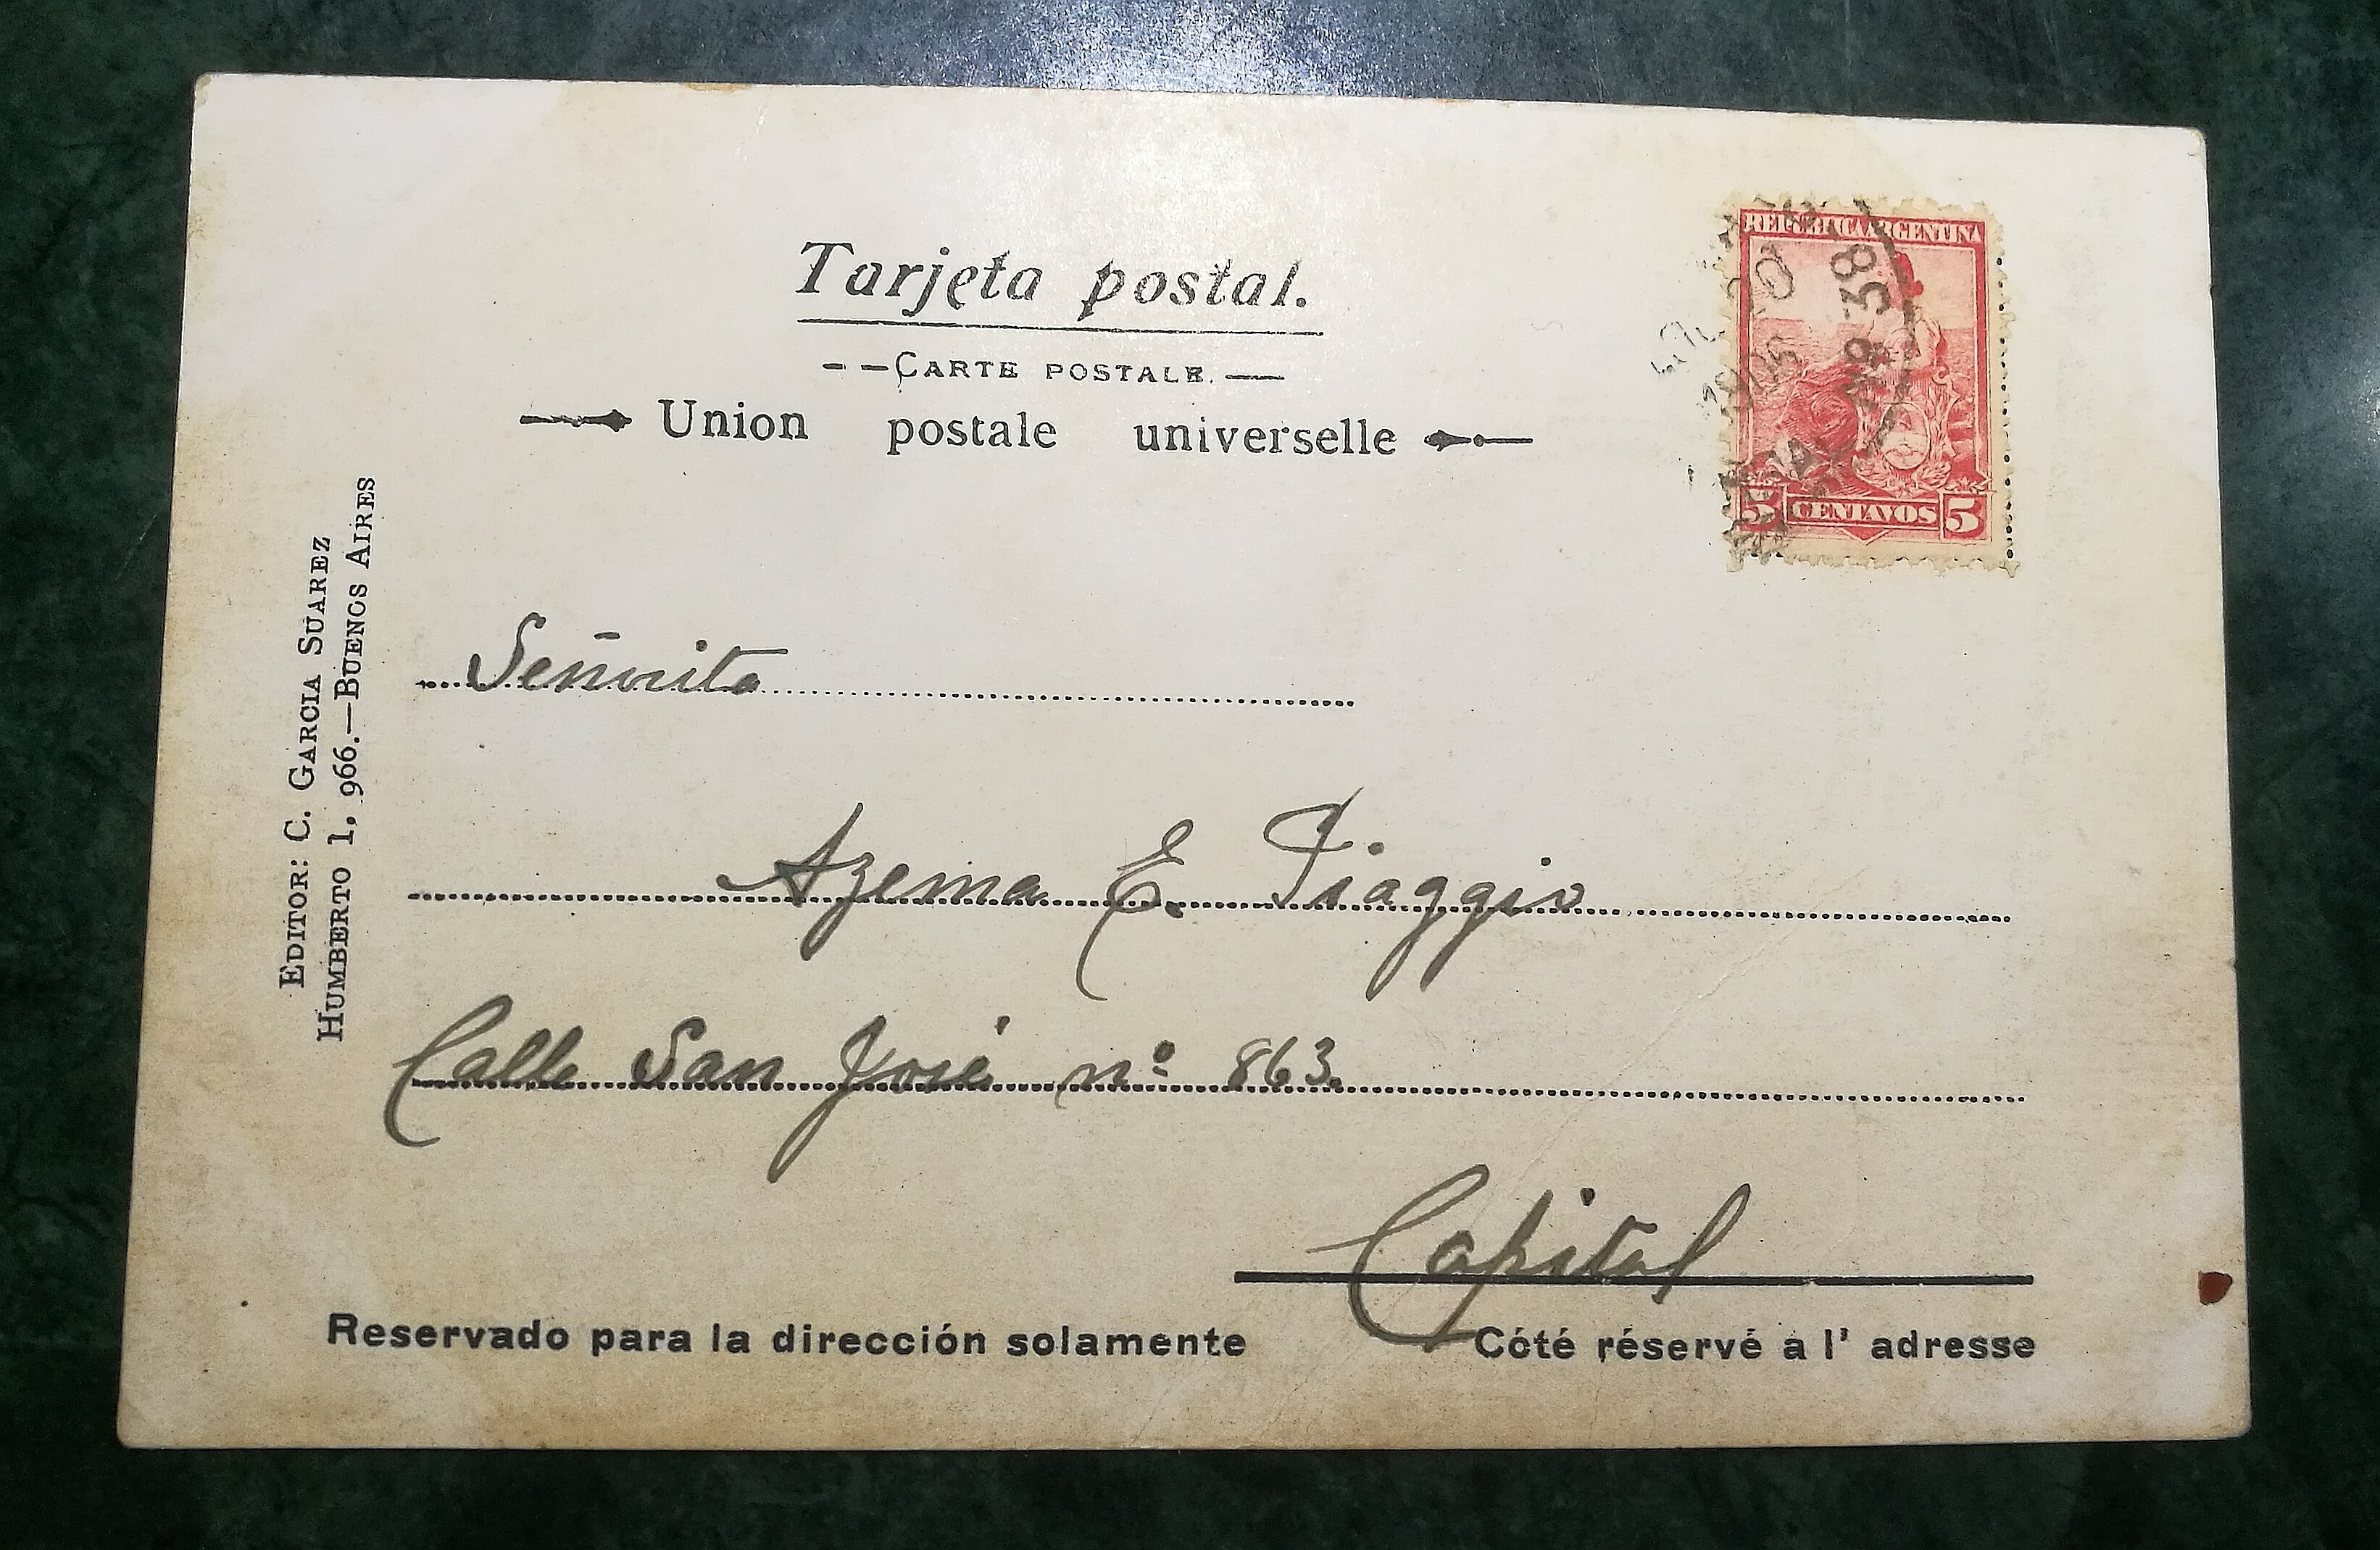 Tarjeta postal.
CARTE POSTALE.
Union postale universelle
REPUBLICA ARGENTINA
38
5 CENTAVOS 5
EDITOR: C. GARCIA SUAREZ
HUMBERTO 1, 966.—BUENOS AIRES
Señorita
Azema E. Piaggio
Calle San José nº 863.
Capital
Reservado para la dirección solamente
Cóté réservé a l' adresse